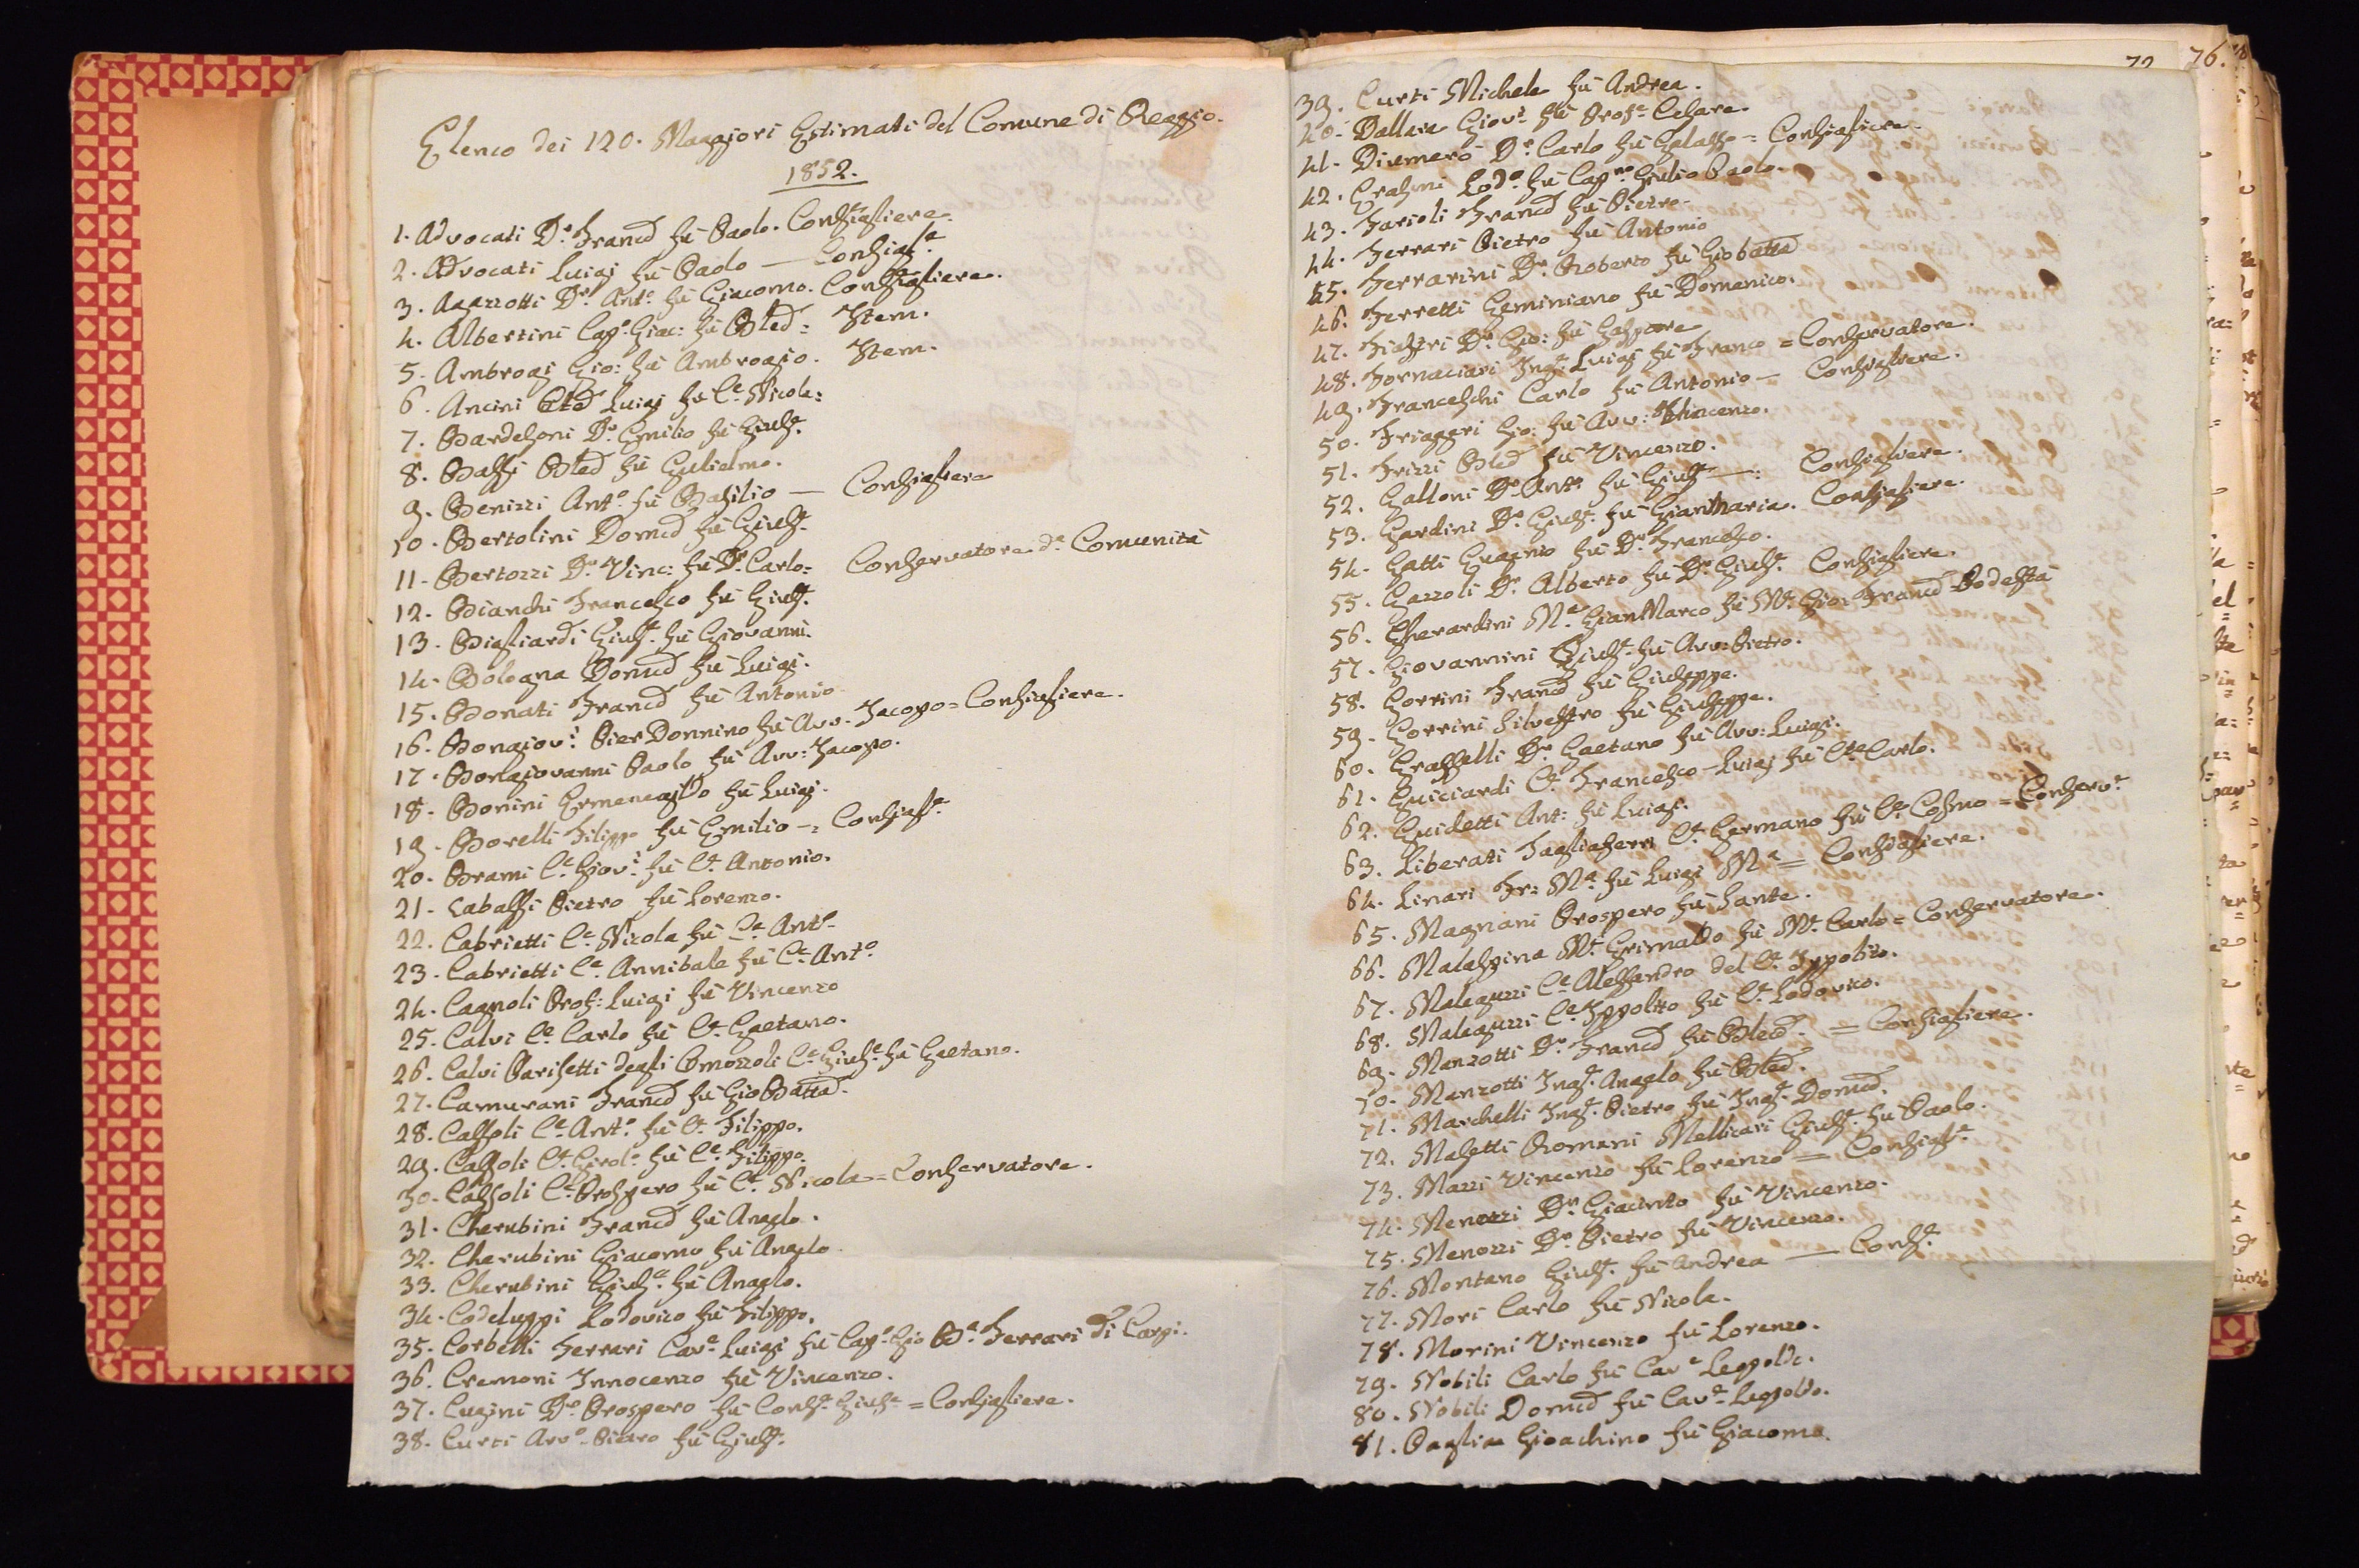 Elenco dei 120. Maggiori Estimati del Comune di Reggio.
1852.
1. Advocati D.r Franc.o fù Paolo. Consigliere.
2. Advocati Luigi fù Paolo — Consigl.e
3. Agazzotti D.r Ant.o fù Giacomo. Consigliere.
4. Albertini Cap.o Giac: fù Bled: Item.
5. Ambrogi Gio: fù Ambrogio. Item.
6. Ancini Luigi fù C.e Nicola:
7. Bardesoni D.r Emilio fù Gius.e
8. Bassi Bled fù Gulielmo.
9. Benizzi Ant.o fù Basilio — Consigliere
10. Bertolini Dom.co fù Gius.e
11. Bertozzi D.r Vinc: fù D.r Carlo: Conservatore d.a Comunità
12. Bianchi Francesco fù Gius.e
13. Bigliardi Gius.e fù Giovanni.
14. Bologna Dom.co fù Luigi.
15. Bonati Franc.o fù Antonio
16. Bongiov.i Pier Donnino fù Avv. Jacopo = Consigliere.
17. Bongiovanni Paolo fù Avv: Jacopo.
18. Bonini Ermenegildo fù Luigi.
19. Borelli Filippo fù Emilio —: Consigl.e
20. Brami C.e Giov.i fù C.e Antonio.
21. Cabassi Pietro fù Lorenzo.
22. Cabrietti C.e Nicola fù C.e Ant.o
23. Cabrietti C.e Annibale fù C.e Ant.o
24. Cagnoli Prof: Luigi fù Vincenzo
25. Calvi C.e Carlo fù C.e Gaetano.
26. Calvi Parisetti degli Omozzoli C.e Gius.e fù Gaetano.
27. Camurani Franc.o fù Gio Batta.
28. Cassoli C.e Ant.o fù C.e Filippo.
29. Cassoli C.e Girol.o fù C.e Filippo.
30. Cassoli C.e Prospero fù C.e Nicola = Conservatore.
31. Cherubini Franc.o fù Angelo.
32. Cherubini Giacomo fù Angelo
33. Cherubini Gius.e fù Angelo.
34. Codeluppi Lodovico fù Filippo.
35. Corbelli Ferrari Cav.e Luigi fù Cap.o Gio B.a Ferrari di Carpi.
36. Cremoni Innocenzo fù Vincenzo.
37. Cugini D.r Prospero fù Cons.e Gius.e = Consigliere.
38. Curti Avv.o Pietro fù Gius.e
72 76.
39. Curti Michele fù Andrea.
40. Dallara Giov.i fù Prof.e Cesare.
41. Diemero D.r Carlo fù Galasso = Consigliere.
42. Erasmi Lod.o fù Cap.no Giulio Paolo.
43. Farioli Franc.o fù Pietro.
44. Ferrari Pietro fù Antonio
45. Ferrarini D.r Roberto fù Giobatta
46. Ferretti Geminiano fù Domenico.
47. Fiastri D.r Gio: fù Gaspare
48. Fornaciari Ing.e Luigi fù Franco = Conservatore.
49. Franceschi Carlo fù Antonio — Consigliere.
50. Friggeri Gio: fù Avv: Vincenzo.
51. Frizzi Bled fù Vincenzo.
52. Galloni D.r Ant.o fù Gius.e —: Consigliere.
53. Gardini D.r Gius.e fù Gianmaria. Consigliere.
54. Gatti Eugenio fù D.r Francesco.
55. Gazzoli D.r Alberto fù D.r Gius.e Consigliere.
56. Gherardini M.e GianMarco fù M.e Gio: Franc.o Podestà
57. Giovannini Gius.e fù Avv: Pietro.
58. Gorrini Franc.o fù Giuseppe.
59. Gorrini Silvestro fù Giuseppe.
60. Grasselli D.r Gaetano fù Avv: Luigi.
61. Guicciardi C.e Francesco-Luigi fù C.te Carlo.
62. Guidetti Ant: fù Luigi.
63. Liberati Tagliaferri C.e Germano fù C.e Cosmo = Conserv.e
64. Linari Fr: M.a fù Luigi M.a = Consigliere.
65. Magnani Prospero fù Sante.
66. Malaspina M.e Grimaldo fù M.e Carlo = Conservatore.
67. Maleguzzi C.e Alessandro del C.e Ippolito.
68. Maleguzzi C.e Ippolito fù C.e Lodovico.
69. Manzotti D.r Franc.o fù Bled. = Consigliere.
70. Manzotti Ing.e Angelo fù Bled.
71. Marchelli Ing.e Pietro fù Ing.e Dom.co
72. Masetti Romani Mellicari Gius.e fù Paolo.
73. Mazzi Vincenzo fù Lorenzo = Consigl.e
74. Menozzi D.r Giacinto fù Vincenzo.
75. Menozzi D.r Pietro fù Vincenzo.
76. Montano Gius.e fù Andrea — Cons.e
77. Mori Carlo fù Nicola.
78. Morini Vincenzo fù Lorenzo.
79. Nobili Carlo fù Cav.e Leopoldo.
80. Nobili Dom.co fù Cav.e Leopoldo.
81. Paglia Gioachino fù Giacomo.